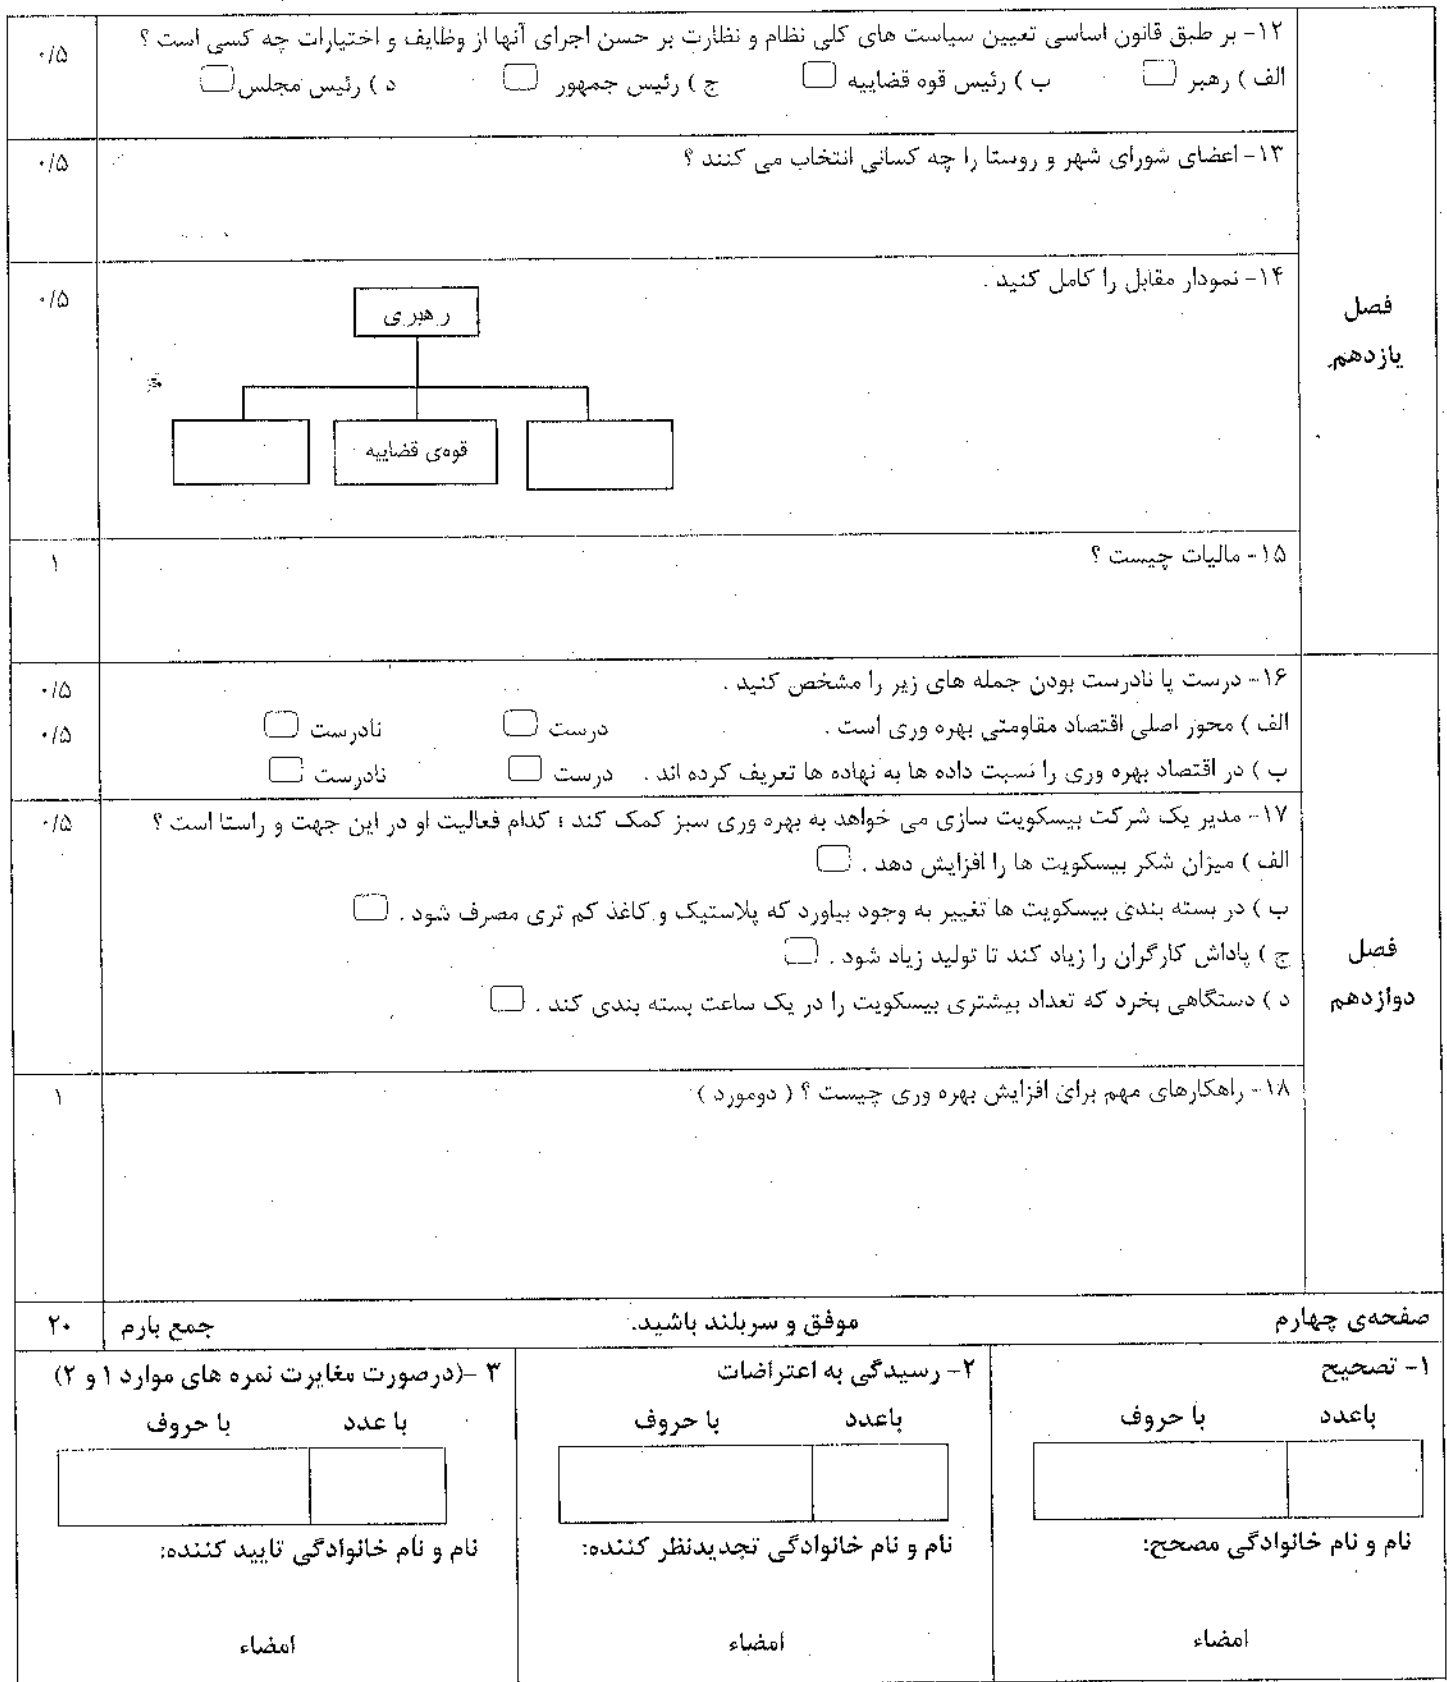 ۱۲- بر طبق قانون اساسی تعیین سیاست های کلی نظام و نظارت بر حسن اجرای آنها از وظایف و اختیارات چه کسی است ؟
۰/۵
الف ) رهبر ب ) رئیس قوه قضاییه ج ) رئیس جمهور د ) رئیس مجلس
۱۳- اعضای شورای شهر و روستا را چه کسانی انتخاب می کنند ؟
۰/۵
۱۴- نمودار مقابل را کامل کنید .
۰/۵
رهبری
قوه‌ی قضاییه
فصل
یازدهم
۱۵- مالیات چیست ؟
۱
۱۶- درست یا نادرست بودن جمله های زیر را مشخص کنید .
۰/۵
الف ) محور اصلی اقتصاد مقاومتی بهره وری است . درست نادرست
۰/۵
ب ) در اقتصاد بهره وری را نسبت داده ها به نهاده ها تعریف کرده اند . درست نادرست
۱۷- مدیر یک شرکت بیسکویت سازی می خواهد به بهره وری سبز کمک کند ؛ کدام فعالیت او در این جهت و راستا است ؟
۰/۵
الف ) میزان شکر بیسکویت ها را افزایش دهد .
ب ) در بسته بندی بیسکویت ها تغییر به وجود بیاورد که پلاستیک و کاغذ کم تری مصرف شود .
ج ) پاداش کارگران را زیاد کند تا تولید زیاد شود .
د ) دستگاهی بخرد که تعداد بیشتری بیسکویت را در یک ساعت بسته بندی کند .
فصل
دوازدهم
۱۸- راهکارهای مهم برای افزایش بهره وری چیست ؟ ( دومورد )
۱
صفحه‌ی چهارم موفق و سربلند باشید. جمع بارم ۲۰
۱- تصحیح
باعدد با حروف
نام و نام خانوادگی مصحح:
امضاء
۲- رسیدگی به اعتراضات
باعدد با حروف
نام و نام خانوادگی تجدیدنظر کننده:
امضاء
۳ -(درصورت مغایرت نمره های موارد ۱ و ۲)
با عدد با حروف
نام و نام خانوادگی تایید کننده:
امضاء